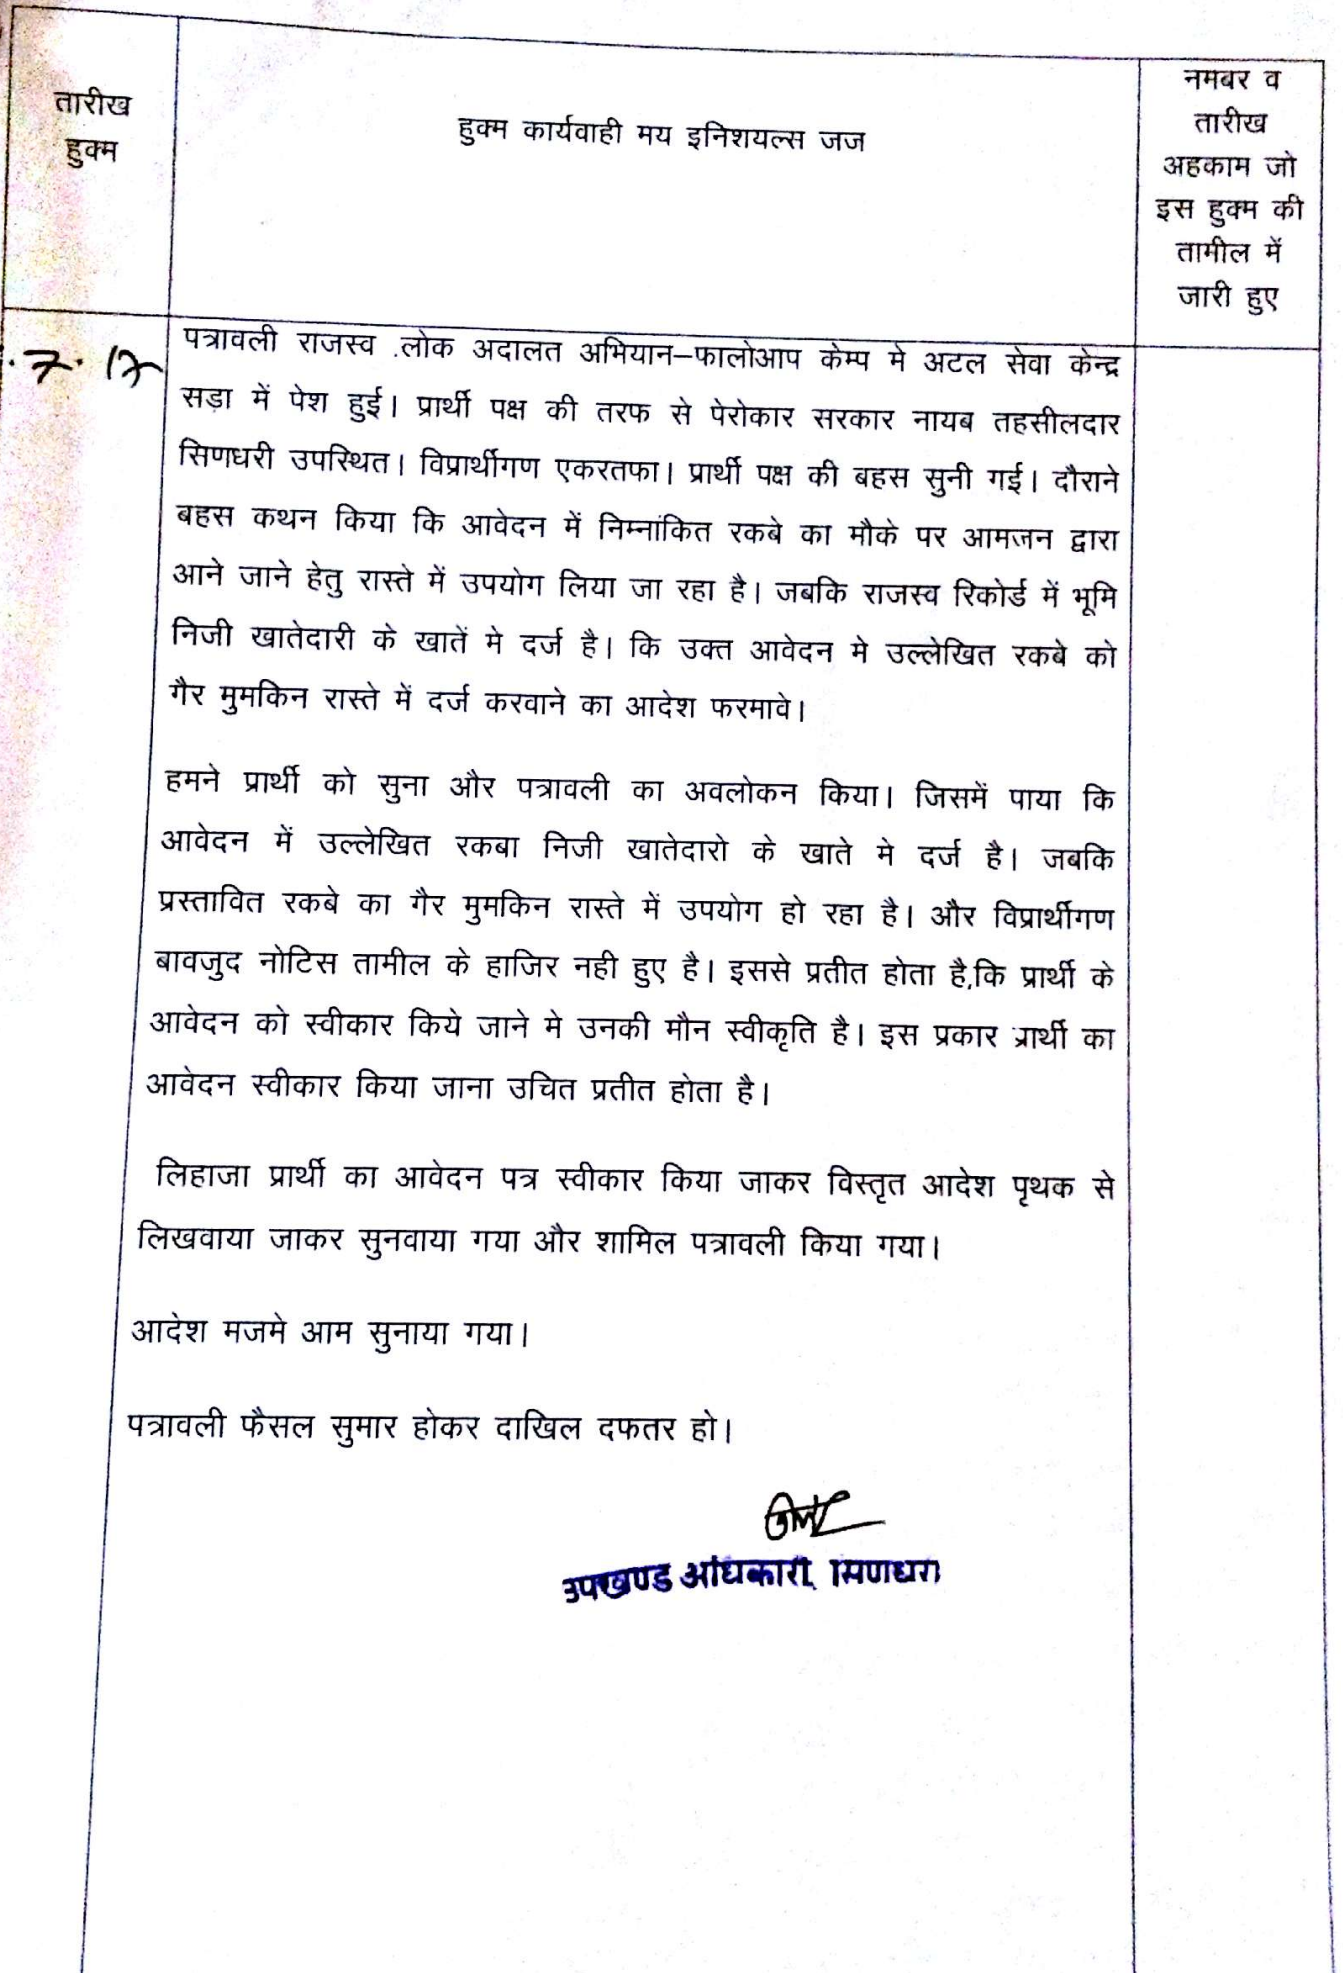 तारीख
हुक्म
हुक्म कार्यवाही मय इनिशयल्स जज
नमबर व
तारीख
अहकाम जो
इस हुक्म की
तामील में
जारी हुए
.7.17
पत्रावली राजस्व .लोक अदालत अभियान–फालोआप केम्प मे अटल सेवा केन्द्र
सड़ा में पेश हुई। प्रार्थी पक्ष की तरफ से पेरोकार सरकार नायब तहसीलदार
सिणधरी उपस्थित। विप्रार्थीगण एकरतफा। प्रार्थी पक्ष की बहस सुनी गई। दौराने
बहस कथन किया कि आवेदन में निम्नांकित रकबे का मौके पर आमजन द्वारा
आने जाने हेतु रास्ते में उपयोग लिया जा रहा है। जबकि राजस्व रिकोर्ड में भूमि
निजी खातेदारी के खातें मे दर्ज है। कि उक्त आवेदन मे उल्लेखित रकबे को
गैर मुमकिन रास्ते में दर्ज करवाने का आदेश फरमावे।
हमने प्रार्थी को सुना और पत्रावली का अवलोकन किया। जिसमें पाया कि
आवेदन में उल्लेखित रकबा निजी खातेदारो के खाते मे दर्ज है। जबकि
प्रस्तावित रकबे का गैर मुमकिन रास्ते में उपयोग हो रहा है। और विप्रार्थीगण
बावजुद नोटिस तामील के हाजिर नही हुए है। इससे प्रतीत होता है,कि प्रार्थी के
आवेदन को स्वीकार किये जाने मे उनकी मौन स्वीकृति है। इस प्रकार प्रार्थी का
आवेदन स्वीकार किया जाना उचित प्रतीत होता है।
लिहाजा प्रार्थी का आवेदन पत्र स्वीकार किया जाकर विस्तृत आदेश पृथक से
लिखवाया जाकर सुनवाया गया और शामिल पत्रावली किया गया।
आदेश मजमे आम सुनाया गया।
पत्रावली फैसल सुमार होकर दाखिल दफतर हो।
उपखण्ड अधिकारी, सिणधरी